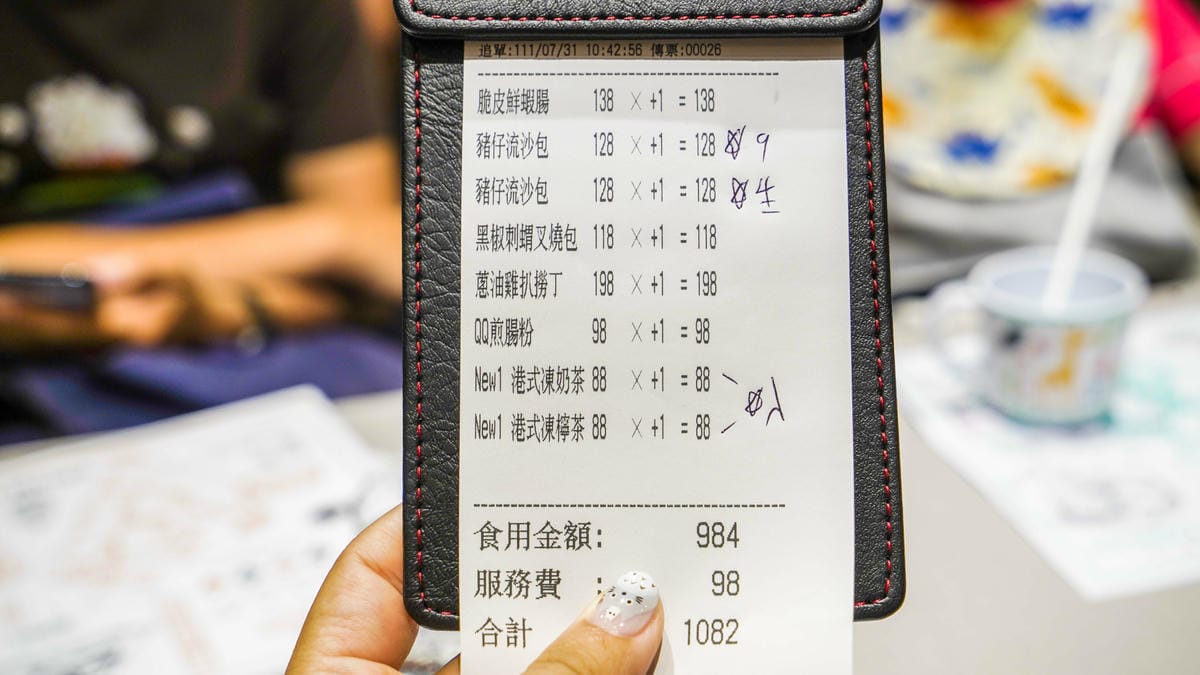 追單:111/07/31 10:42:56 傳票:00026
--------------------------------
脆皮鮮蝦腸 138 × +1 = 138
豬仔流沙包 128 × +1 = 128
豬仔流沙包 128 × +1 = 128
黑椒刺蝟叉燒包 118 × +1 = 118
蔥油雞扒撈丁 198 × +1 = 198
QQ煎腸粉 98 × +1 = 98
New1 港式凍奶茶 88 × +1 = 88
New1 港式凍檸茶 88 × +1 = 88
--------------------------------
食用金額: 984
服務費 : 98
合計 1082